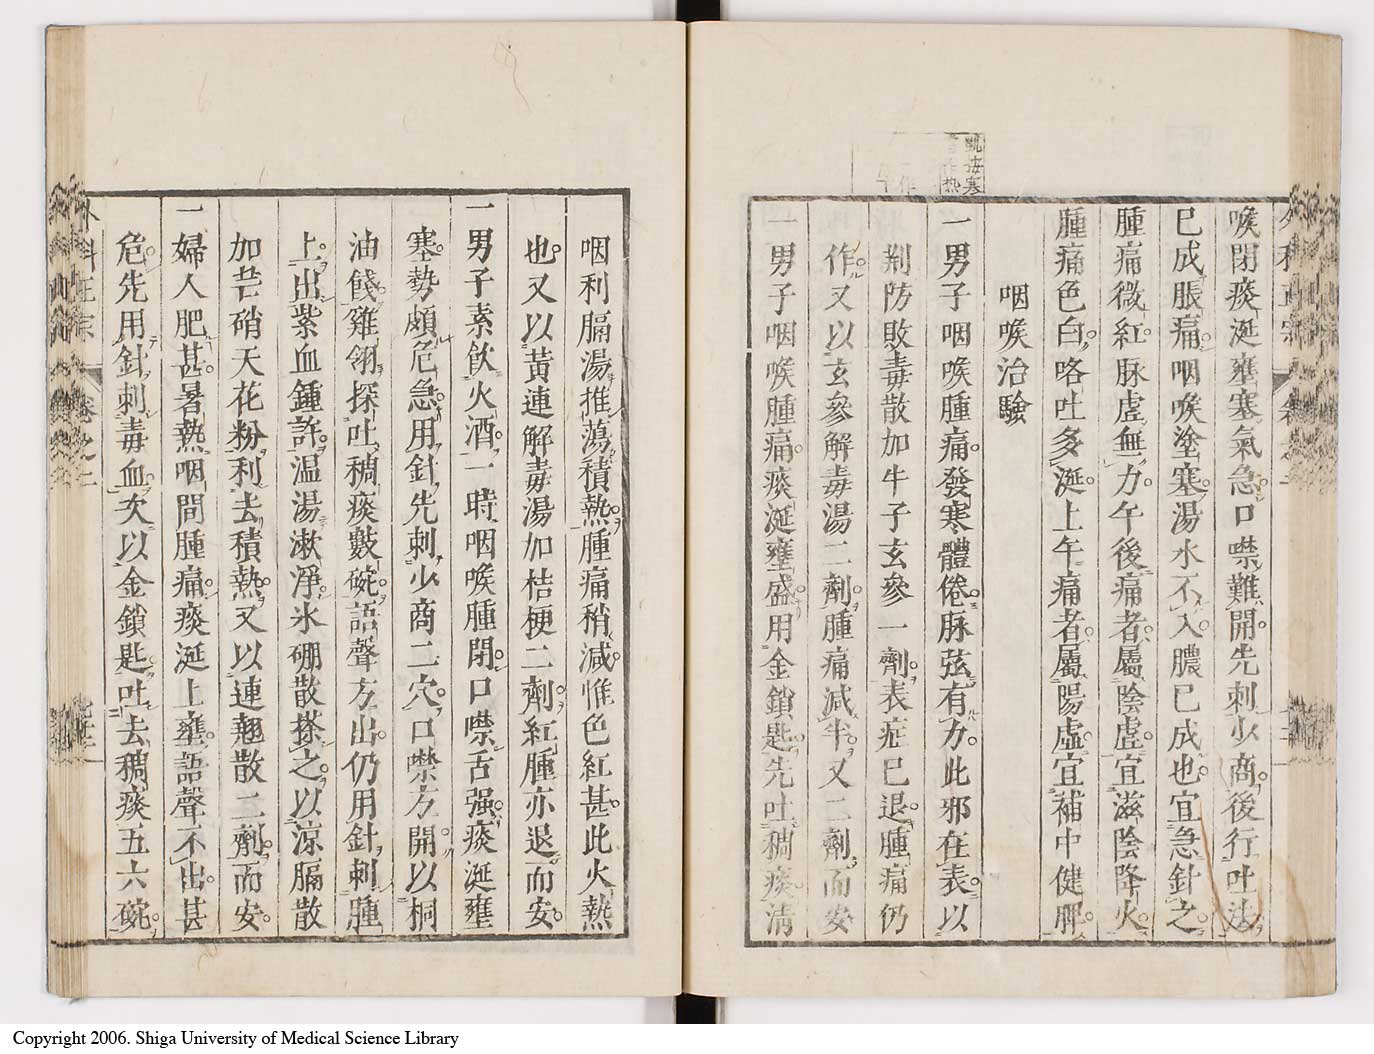 喉閉痰涎壅塞氣急口噤難開先刺少商後行吐法
已成脹痛咽喉塗塞湯水不入膿已成也宜急針之
腫痛微紅脉虛無力午後痛者屬陰虛宜滋陰降火
腫痛色白咯吐多涎上午痛者屬陽虛宜補中健脾
咽喉治驗
一男子咽喉腫痛發寒體倦脉弦有力此邪在表以
荊防敗毒散加牛子玄參一劑表症已退腫痛仍
作又以玄參解毒湯二劑腫痛減半又二劑而安
一男子咽喉腫痛痰涎壅盛用金鎖匙先吐稠痰清
咽利膈湯推蕩積熱腫痛稍減惟色紅甚此火熱
也又以黃連解毒湯加桔梗二劑紅腫亦退而安
一男子素飲火酒一時咽喉腫閉口噤舌强痰涎壅
塞勢頗危急用針先刺少商二穴口噤方開以桐
油餞雞翎探吐稠痰數碗語聲方出仍用針刺腫
上出紫血鍾許温湯漱淨氷硼散搽之以涼膈散
加芒硝天花粉利去積熱又以連翹散二劑而安
一婦人肥甚暑熱咽間腫痛痰涎上壅語聲不出甚
危先用針刺毒血次以金鎖匙吐去稠痰五六碗
Copyright 2006. Shiga University of Medical Science Library